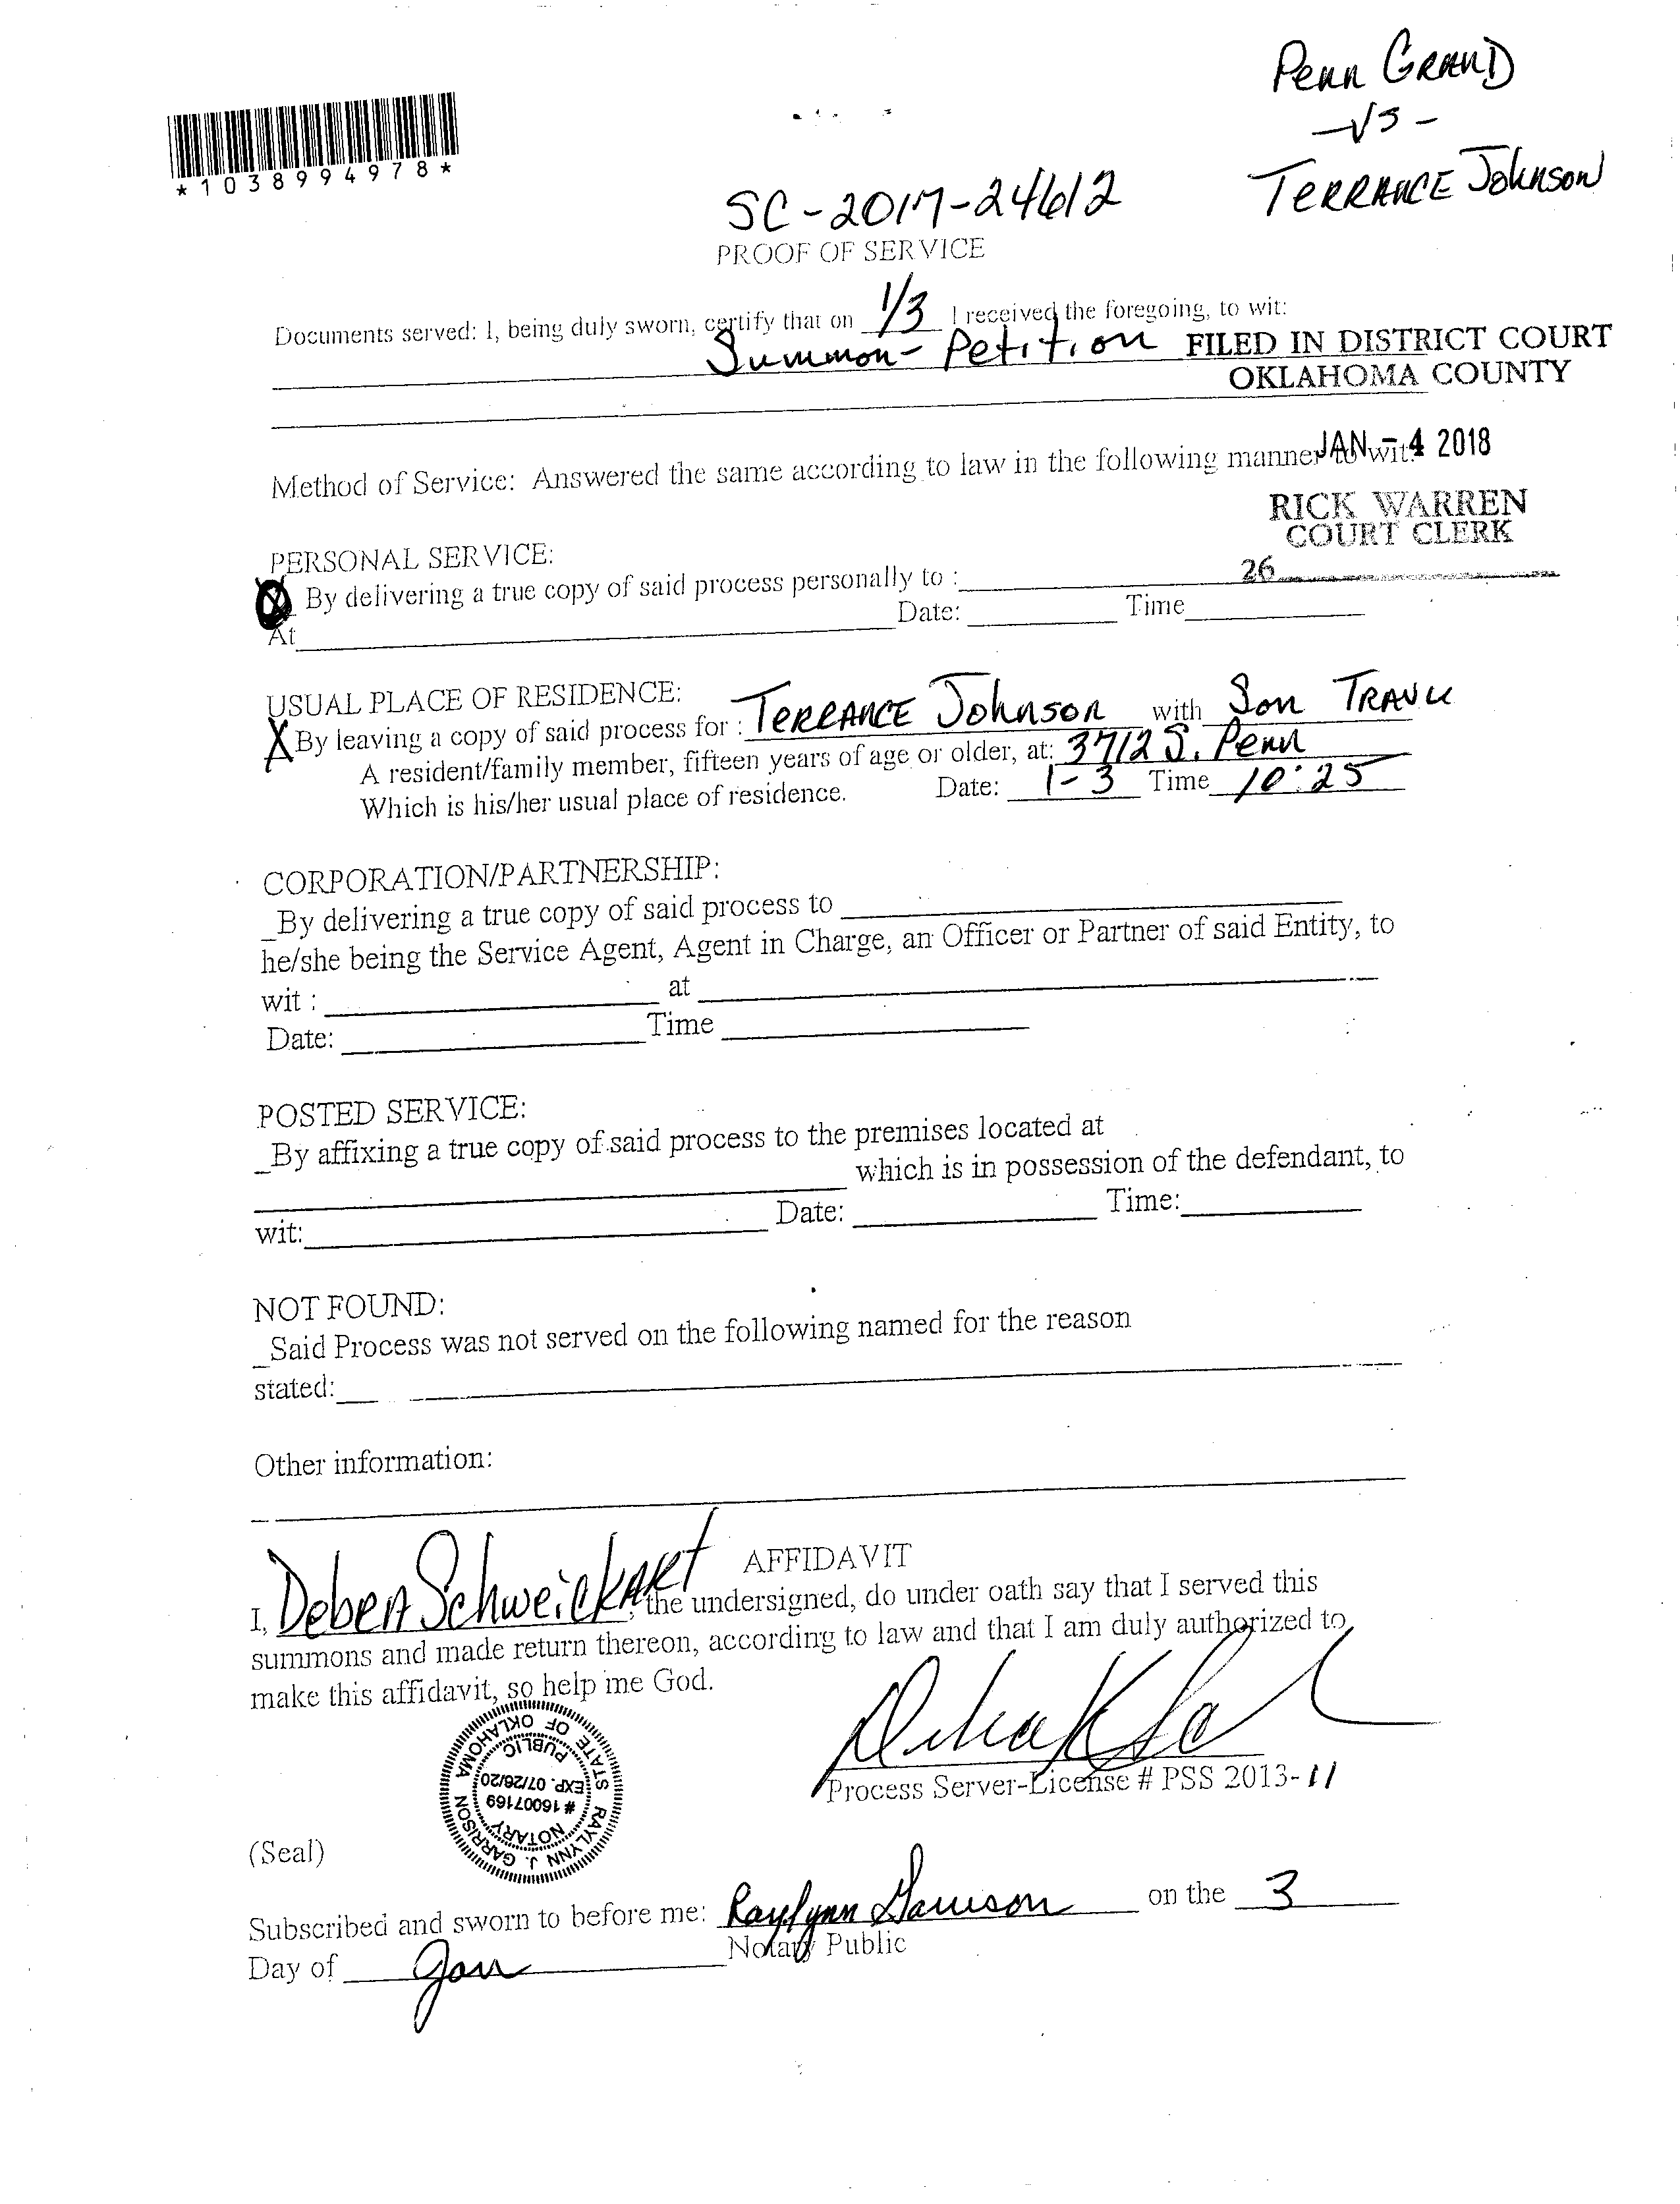 Penn Grand
-VS-
Terrance Johnson
*1038994978*
SC-2017-24612
PROOF OF SERVICE
Documents served: I, being duly sworn, certify that on 1/3 I received the foregoing, to wit:
Summon- Petition FILED IN DISTRICT COURT
OKLAHOMA COUNTY
Method of Service: Answered the same according to law in the following manner to wit:
JAN -4 2018
RICK WARREN
COURT CLERK
PERSONAL SERVICE:
By delivering a true copy of said process personally to : 26
At Date: Time
USUAL PLACE OF RESIDENCE:
X By leaving a copy of said process for : Terrance Johnson with Son
A resident/family member, fifteen years of age or older, at: 3712 S. Penn
Which is his/her usual place of residence. Date: 1-3 Time 10:25
CORPORATION/PARTNERSHIP:
_By delivering a true copy of said process to
he/she being the Service Agent, Agent in Charge, an Officer or Partner of said Entity, to
wit : at
Date: Time
POSTED SERVICE:
_By affixing a true copy of said process to the premises located at
which is in possession of the defendant, to
wit: Date: Time:
NOT FOUND:
_Said Process was not served on the following named for the reason
stated:
Other information:
AFFIDAVIT
I, Debera Schweickart, the undersigned, do under oath say that I served this
summons and made return thereon, according to law and that I am duly authorized to
make this affidavit, so help me God.
Process Server-License # PSS 2013-11
RAYLYNN J. GARRISON
NOTARY
# 16007169
EXP. 07/26/20
PUBLIC
STATE OF OKLAHOMA
(Seal)
Subscribed and sworn to before me: Raylynn Garrison on the 3
Notary Public
Day of Jan